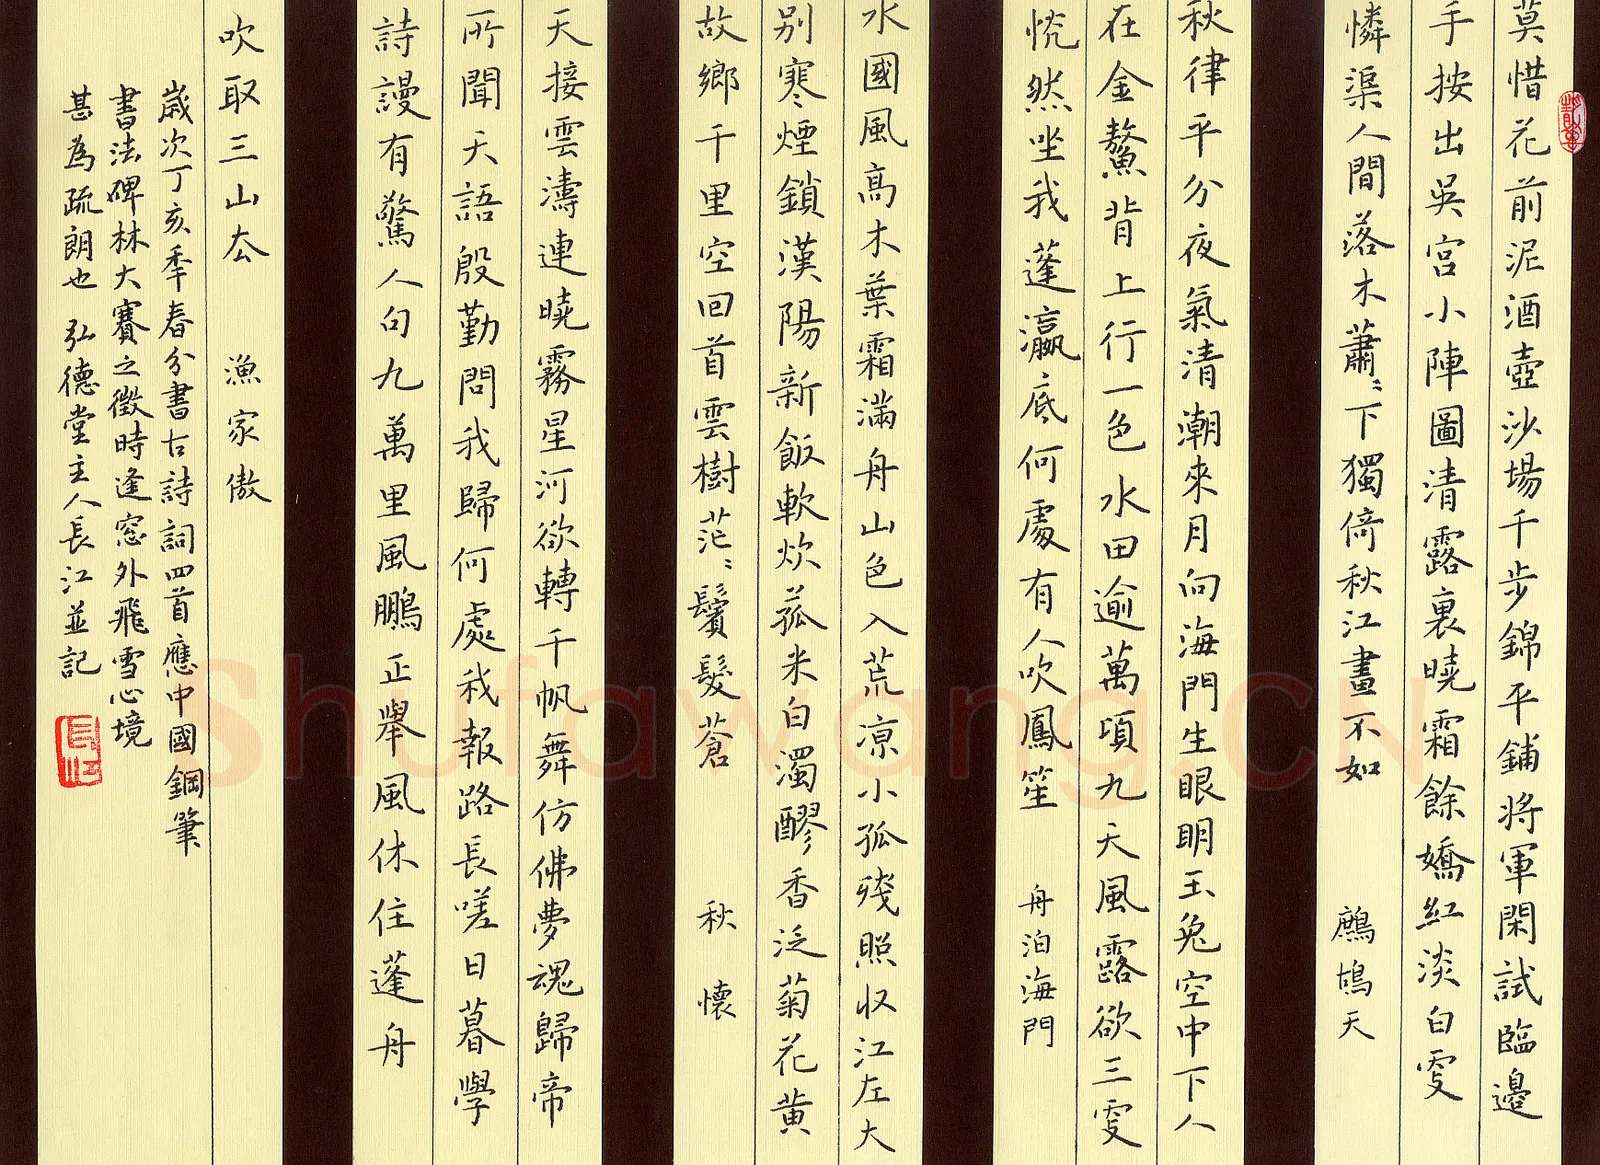 莫惜花前泥酒壺沙場千步錦平鋪將軍閑試臨邊
手按出吳宮小陣圖清露裏曉霜餘嬌紅淡白雯
憐渠人間落木蕭〻下獨倚秋江畫不如
鷓鴣天
秋律平分夜氣清潮來月向海門生眼明玉兔空中下人
在金鰲背上行一色水田逾萬頃九天風露欲三雯
恍然坐我蓬瀛底何處有人吹鳳笙
舟泊海門
水國風高木葉霜滿舟山色入荒涼小孤殘照收江左大
別寒煙鎖漢陽新飯軟炊菰米白濁醪香泛菊花黃
故鄉千里空回首雲樹茫〻鬢髮蒼
秋懷
天接雲濤連曉霧星河欲轉千帆舞仿佛夢魂歸帝
所聞天語殷勤問我歸何處我報路長嗟日暮學
詩謾有驚人句九萬里風鵬正舉風休住蓬舟
吹取三山厺
漁家傲
歲次丁亥年春分書古詩詞四首應中國鋼筆
書法碑林大賽之徵時逢窓外飛雪心境
甚為疏朗也 弘德堂主人長江並記
長江
Shufawang.CN